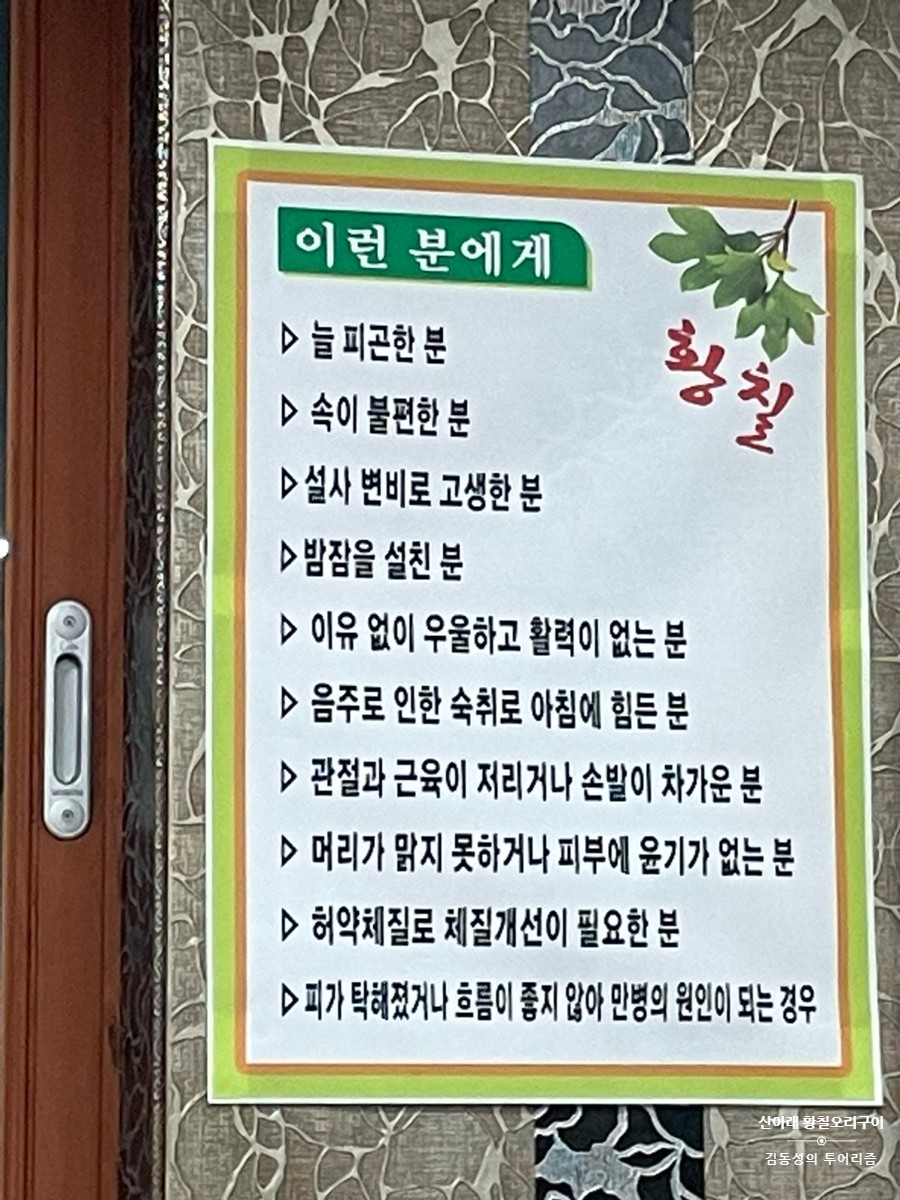 이런 분에게
황칠
▷ 늘 피곤한 분
▷ 속이 불편한 분
▷ 설사 변비로 고생한 분
▷ 밤잠을 설친 분
▷ 이유 없이 우울하고 활력이 없는 분
▷ 음주로 인한 숙취로 아침에 힘든 분
▷ 관절과 근육이 저리거나 손발이 차가운 분
▷ 머리가 맑지 못하거나 피부에 윤기가 없는 분
▷ 허약체질로 체질개선이 필요한 분
▷ 피가 탁해졌거나 흐름이 좋지 않아 만병의 원인이 되는 경우
산아래 황칠오리구이
김동성의 투어리즘